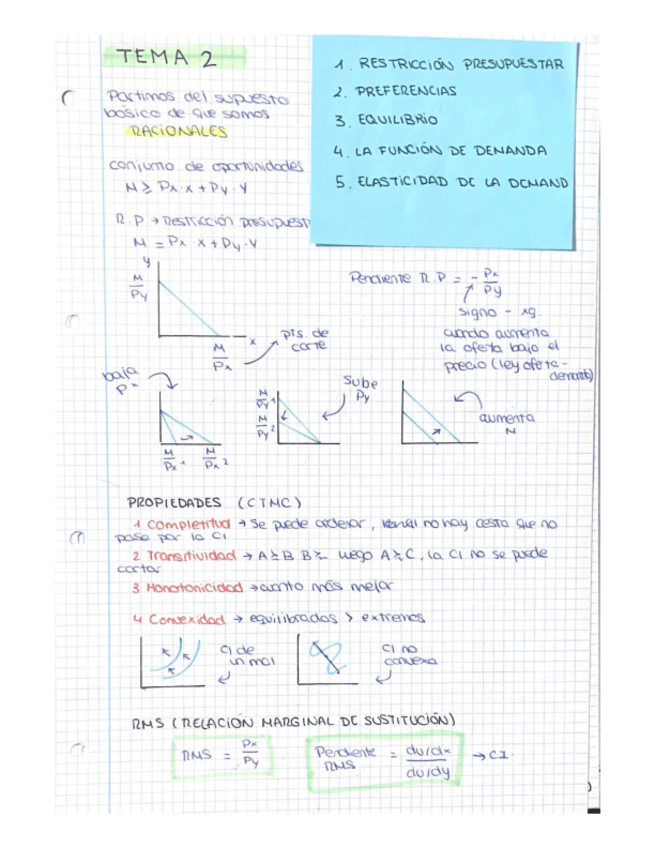 TEMA 2
1. RESTRICCIÓN PRESUPUESTAR
2. PREFERENCIAS
3. EQUILIBRIO
4. LA FUNCIÓN DE DEMANDA
5. ELASTICIDAD DE LA DEMAND
Partimos del supuesto
básico de que somos
RACIONALES
conjunto de oportunidades
M ≥ Px·x + Py·y
R.P → Restricción presupuest
M = Px·x + Py·y
y
M/Py
M/Px
x
pts. de
corte
Pendiente R.P = - Px/Py
signo -
cuando aumenta
la oferta bajo el
precio (ley oferta-
demanda)
baja
P
M/Px 1 M/Px 2
M/Py 1
M/Py 2
Sube
Py
aumenta
M
PROPIEDADES (CTMC)
1 Completitud → Se puede ordenar, no hay cesta que no
pase por la CI
2 Transitividad → A ≿ B B ≿ luego A ≿ C, la CI no se puede
cortar
3 Monotonicidad → cuanto más mejor
4 Convexidad → equilibrados > extremos
CI de
un mal
CI no
convexa
RMS (RELACIÓN MARGINAL DE SUSTITUCIÓN)
RMS = Px/Py
Pendiente RMS = du/dx / du/dy → CI